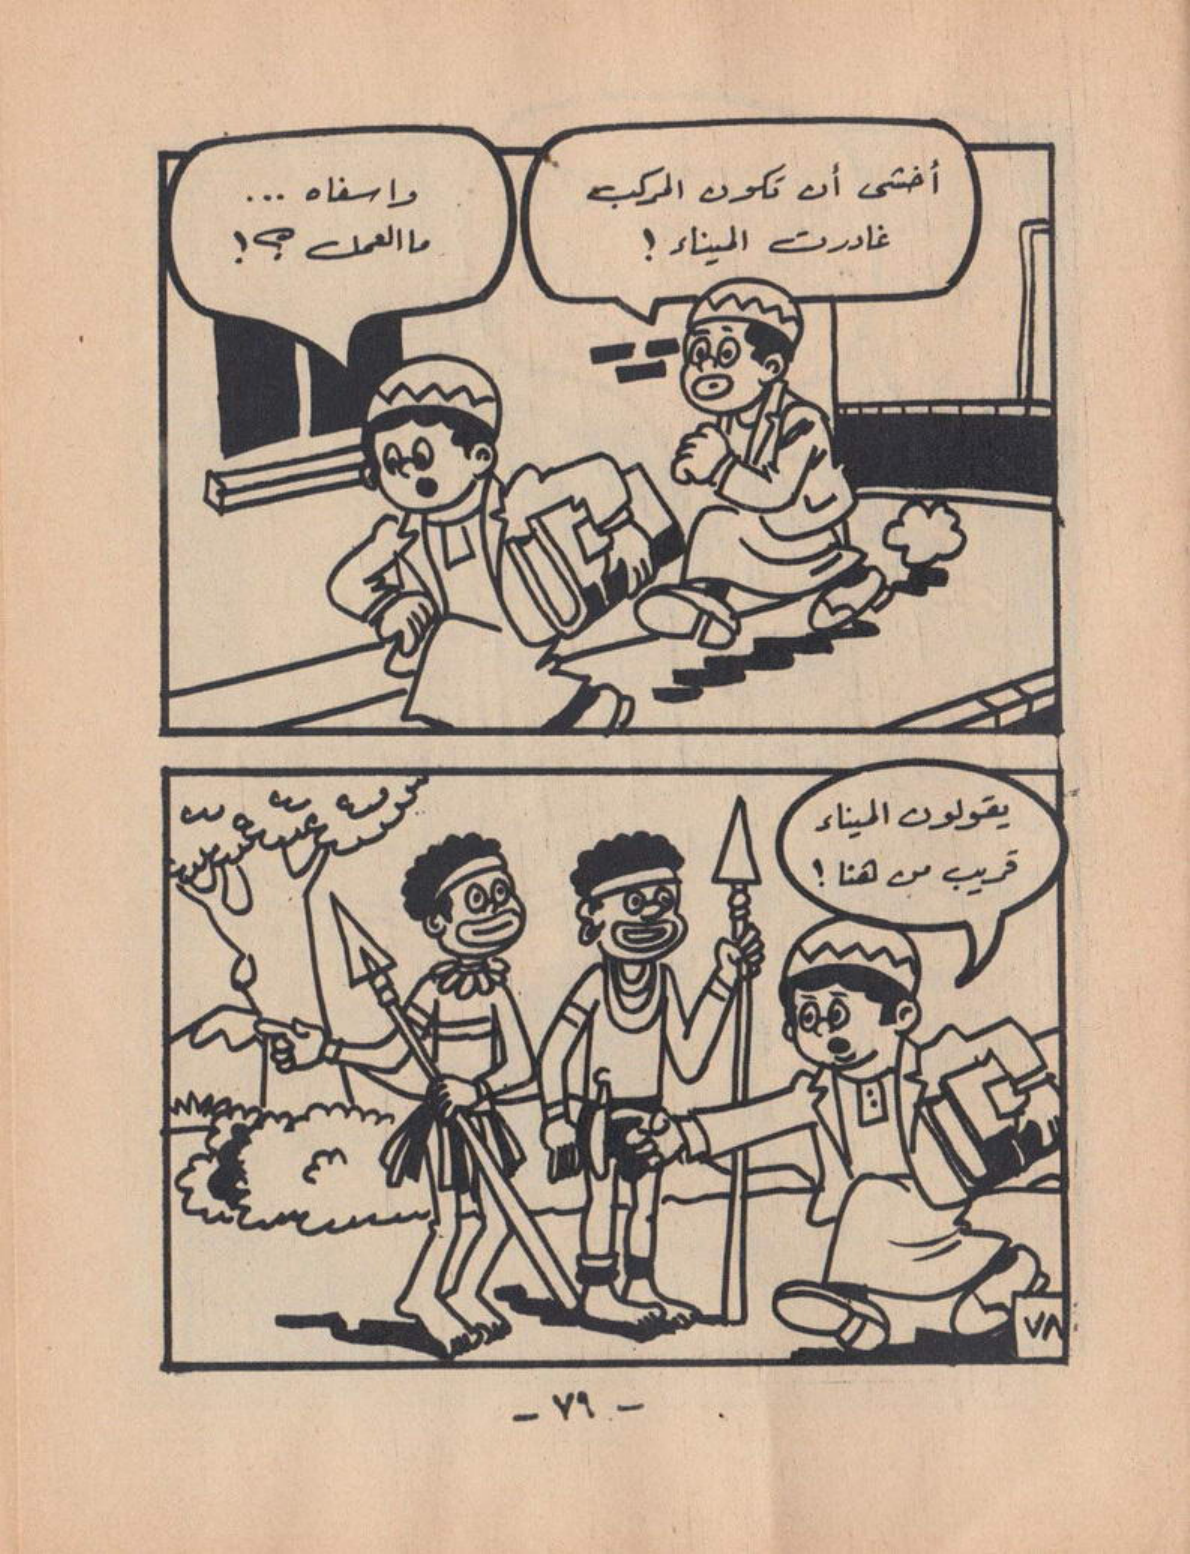 أخشى أن تكون المركب
غادرت الميناء !
واسفاه ...
ما العمل ؟!
يقولون الميناء
قريب من هنا !
٧٨
- ٧٩ -